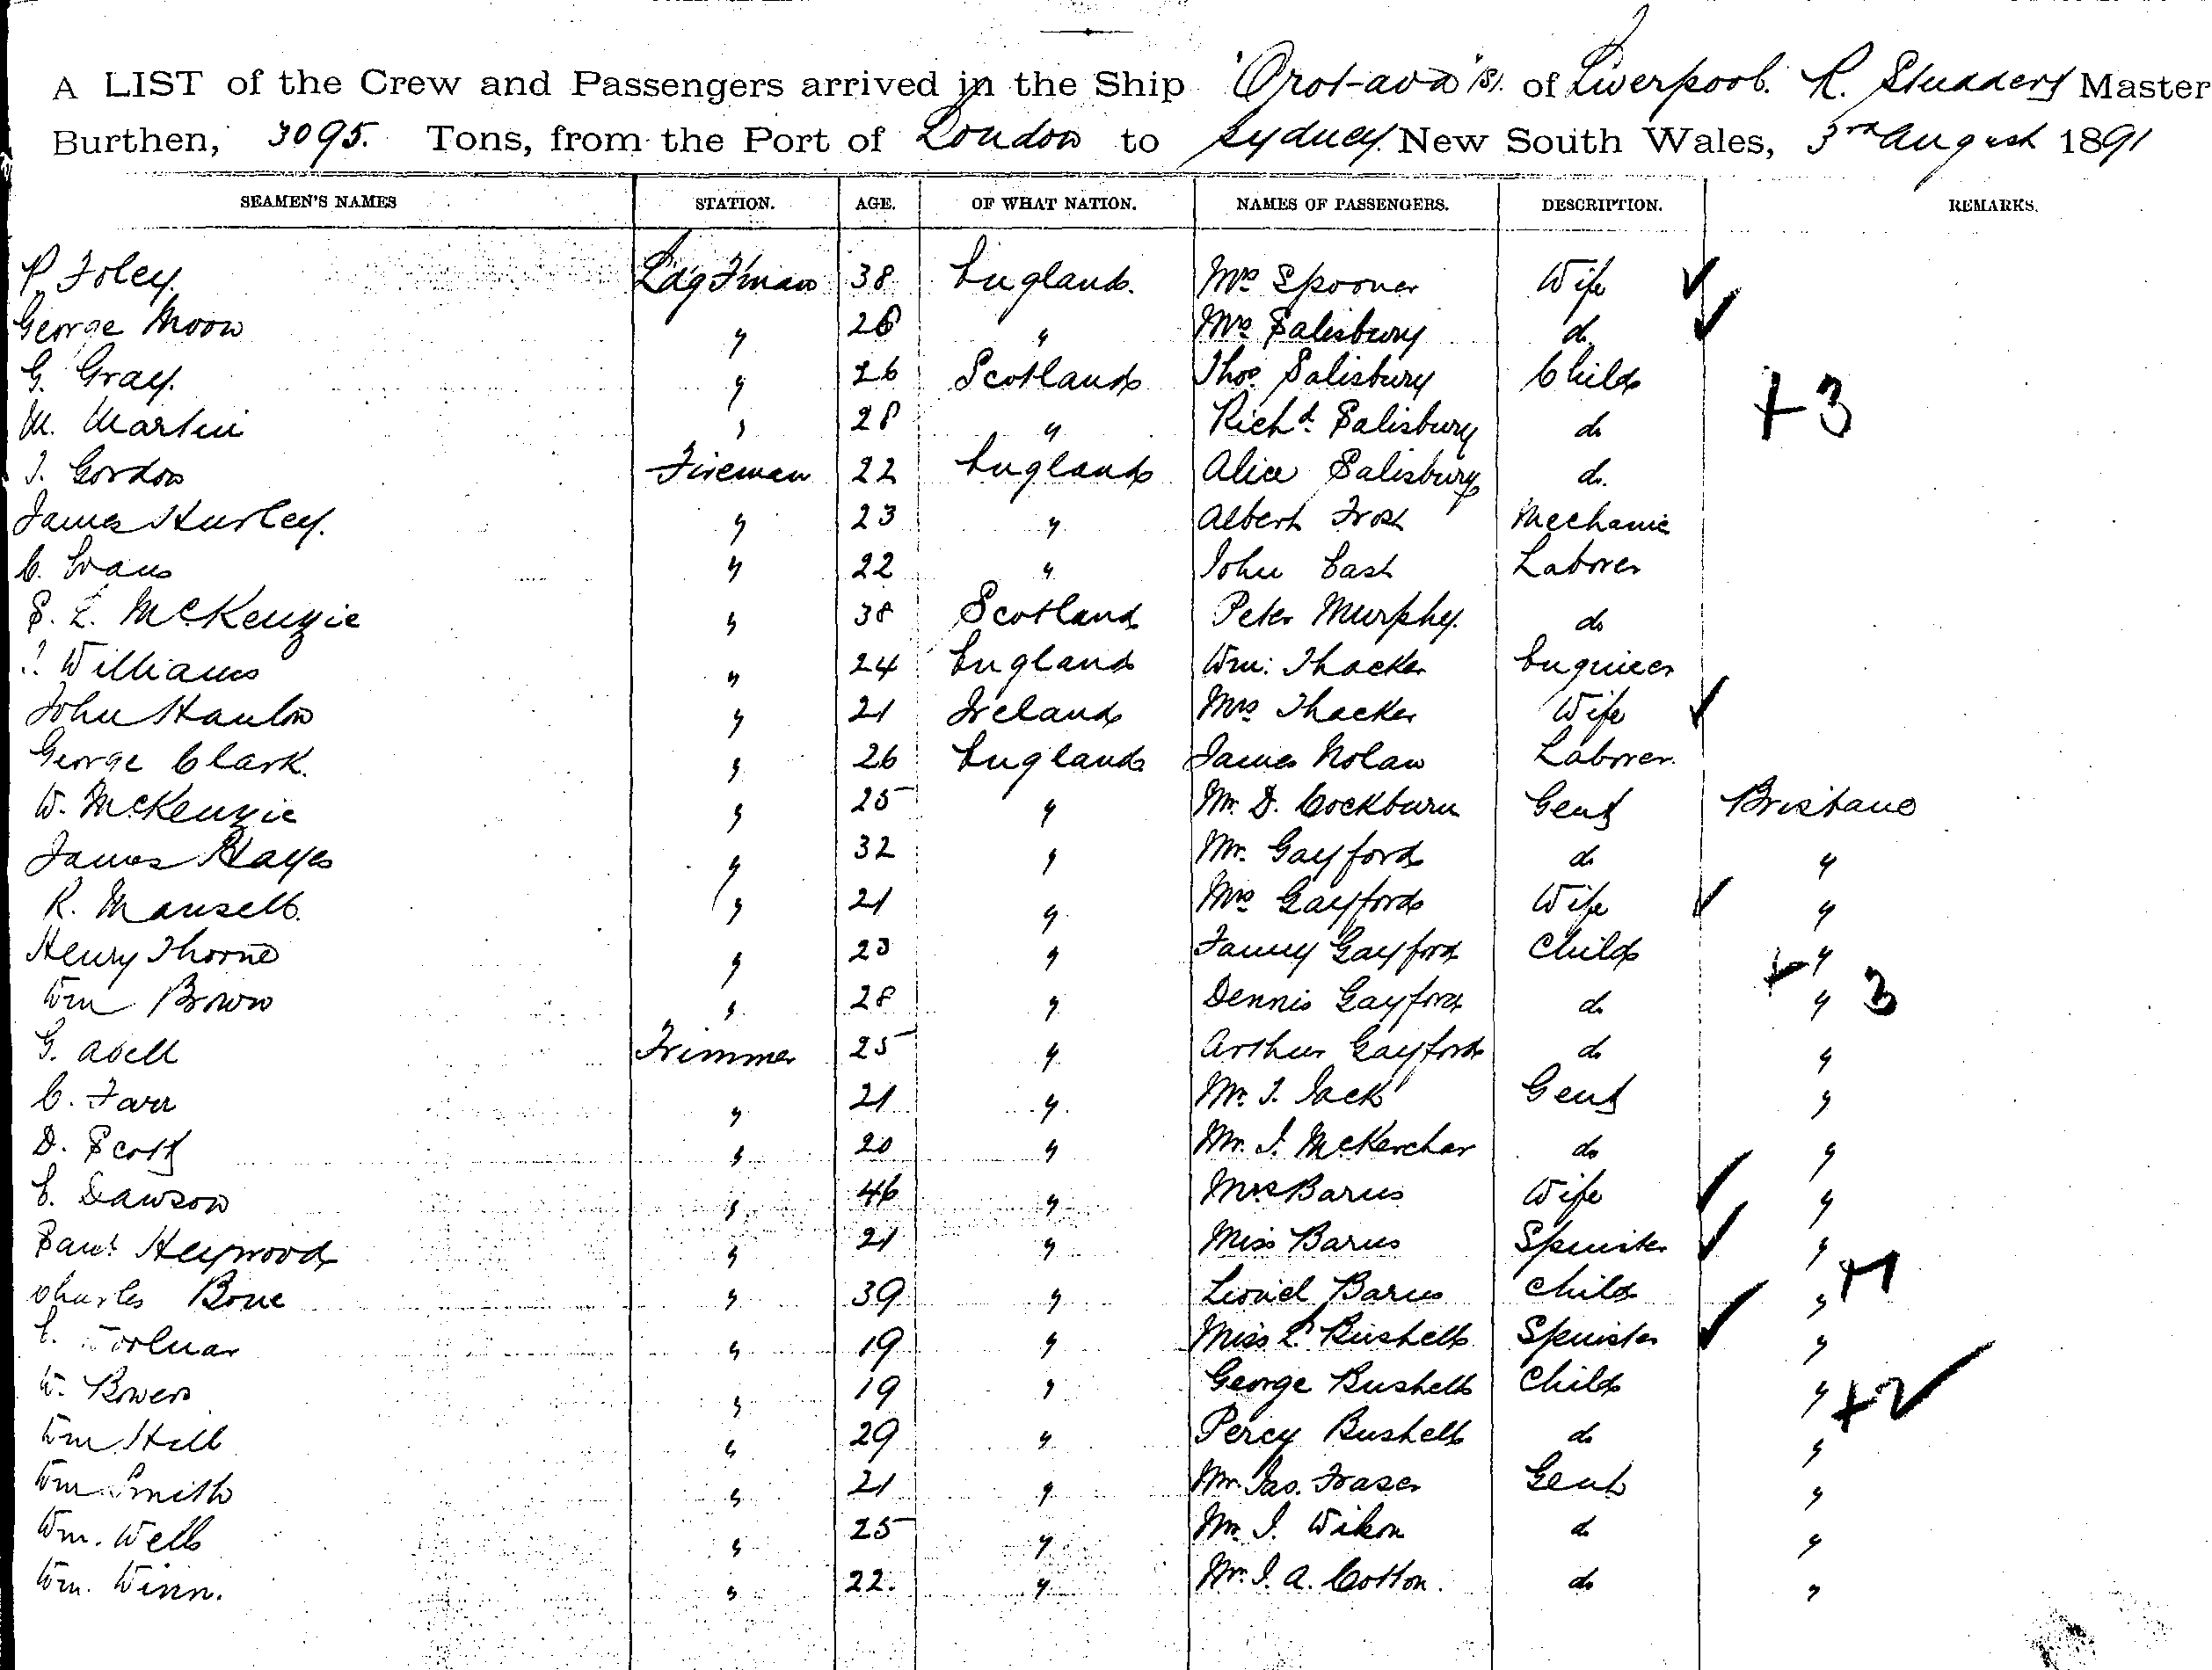 A LIST of the Crew and Passengers arrived in the Ship "Orotava" (S). of Liverpool. R. Studdert Master
Burthen, 3095. Tons, from the Port of London to Sydney New South Wales, 3rd August 1891
SEAMEN'S NAMES STATION. AGE. OF WHAT NATION. NAMES OF PASSENGERS. DESCRIPTION. REMARKS.
P. Foley. Ldg F'man 38 England. Mrs Spooner Wife ✓
George Moon " 26 " Mrs Salisbury do ✓
G. Gray. " 26 Scotland Thos Salisbury Child + 3
M. Martin " 28 " Richd. Salisbury do
J. Gordon Fireman 22 England Alice Salisbury do.
James Hurley. " 23 " Albert Frost Mechanic
C. Evans " 22 " John East Laborer
S. L. McKenzie " 38 Scotland Peter Murphy. do
Williams " 24 England Wm: Thacker Engineer
John Hanlon " 21 Ireland Mrs Thacker Wife ✓
George Clark. " 26 England James Nolan Laborer.
W. McKenzie " 25 " Mr. D. Cockburn Gent Brisbane
James Hayes " 32 " Mr. Gayford do "
R. Mansell. " 21 " Mrs Gayford Wife ✓ "
Henry Thorne " 23 " Fanny Gayford Child + "
Wm Brown " 28 " Dennis Gayford do " 3
G. Abell Trimmer 25 " Arthur Gayford do "
C. Farr " 21 " Mr. J. Jack Gent "
D. Scott " 20 " Mr. J. McKerchar do "
E. Dawson " 46 " Mrs Barns Wife ✓ "
Saml Heywood " 21 " Miss Barns Spinster ✓ "
Charles Bone " 39 " Lionel Barns Child " +1
E. " 19 " Miss L. Bushell Spinster ✓ "
W. Bowers " 19 " George Bushell Child " +2 ✓
Wm Hill " 29 " Percy Bushell do "
Wm Smith " 21 " Mr. Jas. Fraser Gent "
Wm. Wells " 25 " Mr. J. Wilson do "
Wm. Winn. " 22. " Mr. J. A. Cotton. do "